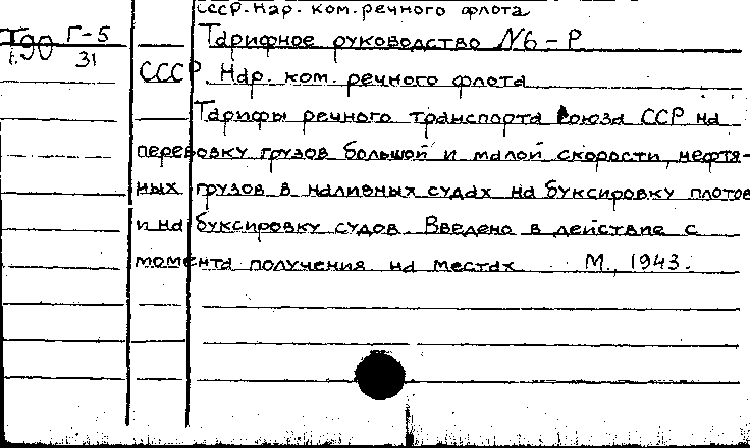 СССР. Нар. ком. речного флота
Г-5 Тарифное руководство №6-Р
90 31
СССР. Нар. ком. речного флота
Тарифы речного транспорта Союза ССР на
перевозку грузов большой и малой скорости, нефтя-
ных грузов в наливных судах на буксировку плотов
и на буксировку судов. Введено в действие с
момента получения на местах. М., 1943.